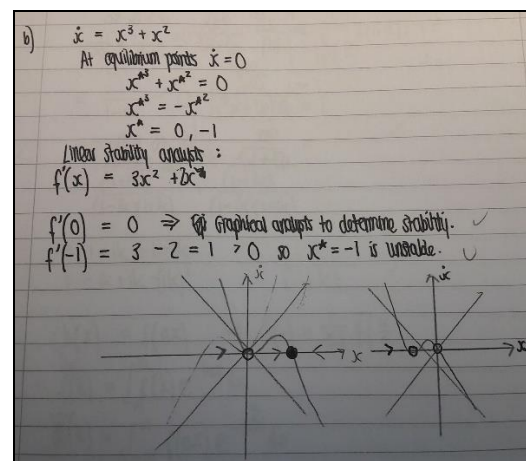 b) ẋ = x³ + x²
At equilibrium points ẋ = 0
x*³ + x*² = 0
x*³ = -x*²
x* = 0, -1
Linear stability analysis :
f'(x) = 3x² + 2x
f'(0) = 0 ⇒ Graphical analysis to determine stability. ✓
f'(-1) = 3 - 2 = 1 > 0 so x* = -1 is unstable.
ẋ ẋ
x x